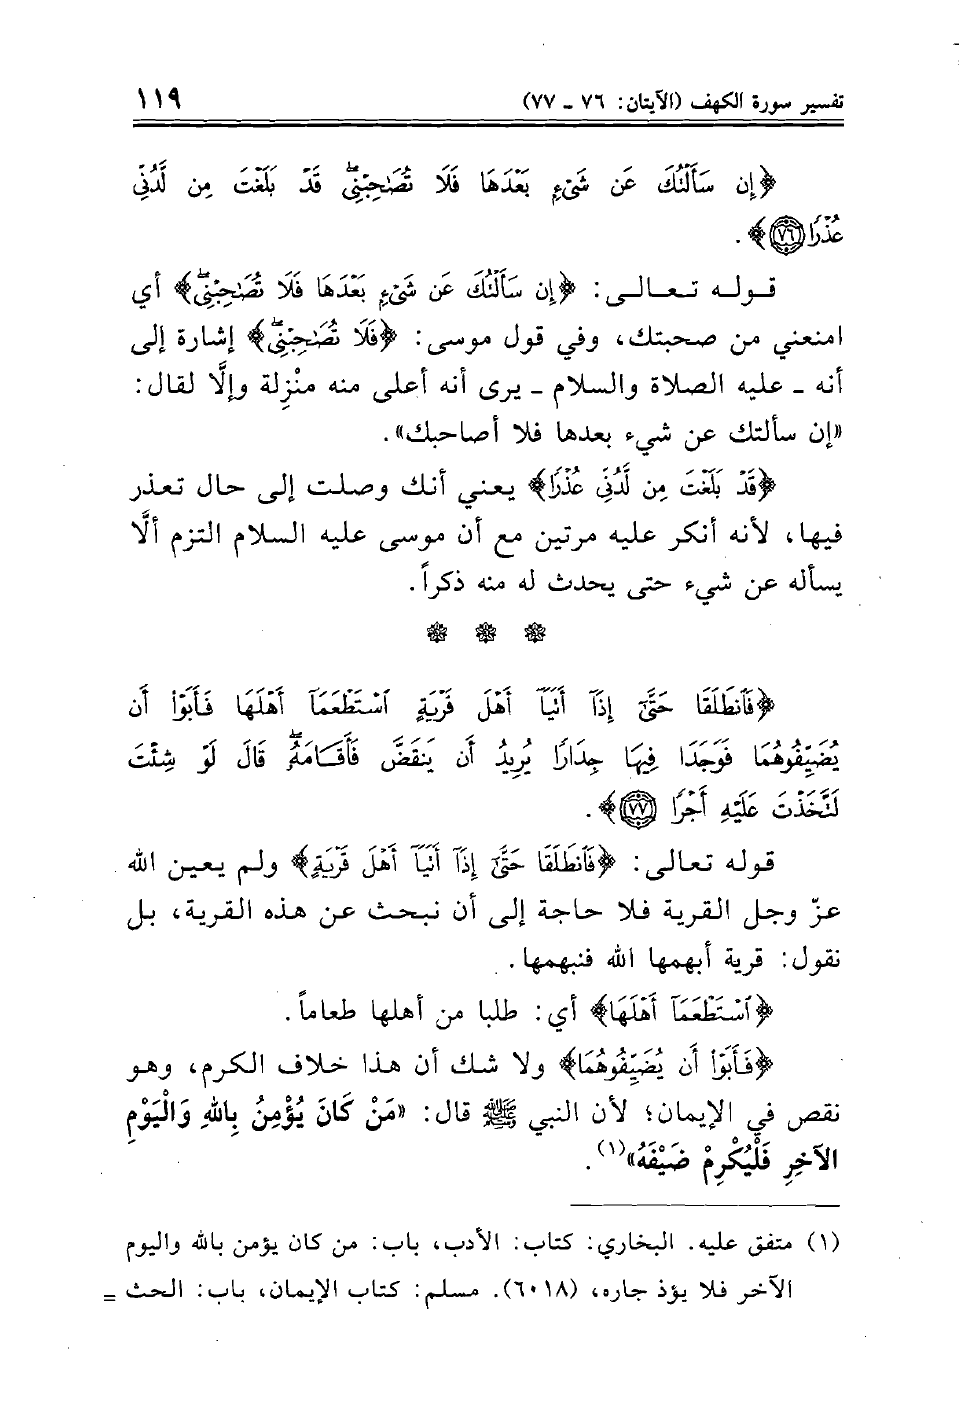 تفسير سورة الكهف (الآيتان: ٧٦ ـ ٧٧)
١١٩
﴿إِن سَأَلْتُكَ عَن شَىْءٍ بَعْدَهَا فَلَا تُصَٰحِبْنِىۖ قَدْ بَلَغْتَ مِن لَّدُنِّى
عُذْرًا ٧٦﴾.
قوله تعالى: ﴿إِن سَأَلْتُكَ عَن شَىْءٍ بَعْدَهَا فَلَا تُصَٰحِبْنِىۖ﴾ أي
امنعني من صحبتك، وفي قول موسى: ﴿فَلَا تُصَٰحِبْنِىۖ﴾ إشارة إلى
أنه ـ عليه الصلاة والسلام ـ يرى أنه أعلى منه منْزِلة وإلَّا لقال:
«إن سألتك عن شيء بعدها فلا أصاحبك».
﴿قَدْ بَلَغْتَ مِن لَّدُنِّى عُذْرًا﴾ يعني أنك وصلت إلى حال تعذر
فيها، لأنه أنكر عليه مرتين مع أن موسى عليه السلام التزم ألَّا
يسأله عن شيء حتى يحدث له منه ذكراً.
﴿فَٱنطَلَقَا حَتَّىٰٓ إِذَآ أَتَيَآ أَهْلَ قَرْيَةٍ ٱسْتَطْعَمَآ أَهْلَهَا فَأَبَوْا۟ أَن
يُضَيِّفُوهُمَا فَوَجَدَا فِيهَا جِدَارًا يُرِيدُ أَن يَنقَضَّ فَأَقَامَهُۥۖ قَالَ لَوْ شِئْتَ
لَتَّخَذْتَ عَلَيْهِ أَجْرًا ٧٧﴾.
قوله تعالى: ﴿فَٱنطَلَقَا حَتَّىٰٓ إِذَآ أَتَيَآ أَهْلَ قَرْيَةٍ﴾ ولم يعين الله
عزّ وجل القرية فلا حاجة إلى أن نبحث عن هذه القرية، بل
نقول: قرية أبهمها الله فنبهمها.
﴿ٱسْتَطْعَمَآ أَهْلَهَا﴾ أي: طلبا من أهلها طعاماً.
﴿فَأَبَوْا۟ أَن يُضَيِّفُوهُمَا﴾ ولا شك أن هذا خلاف الكرم، وهو
نقص في الإيمان؛ لأن النبي ﷺ قال: «مَنْ كَانَ يُؤْمِنُ بِاللهِ وَالْيَوْمِ
الآخِرِ فَلْيُكْرِمْ ضَيْفَهُ»(١).
(١) متفق عليه. البخاري: كتاب: الأدب، باب: من كان يؤمن بالله واليوم
الآخر فلا يؤذ جاره، (٦٠١٨). مسلم: كتاب الإيمان، باب: الحث =